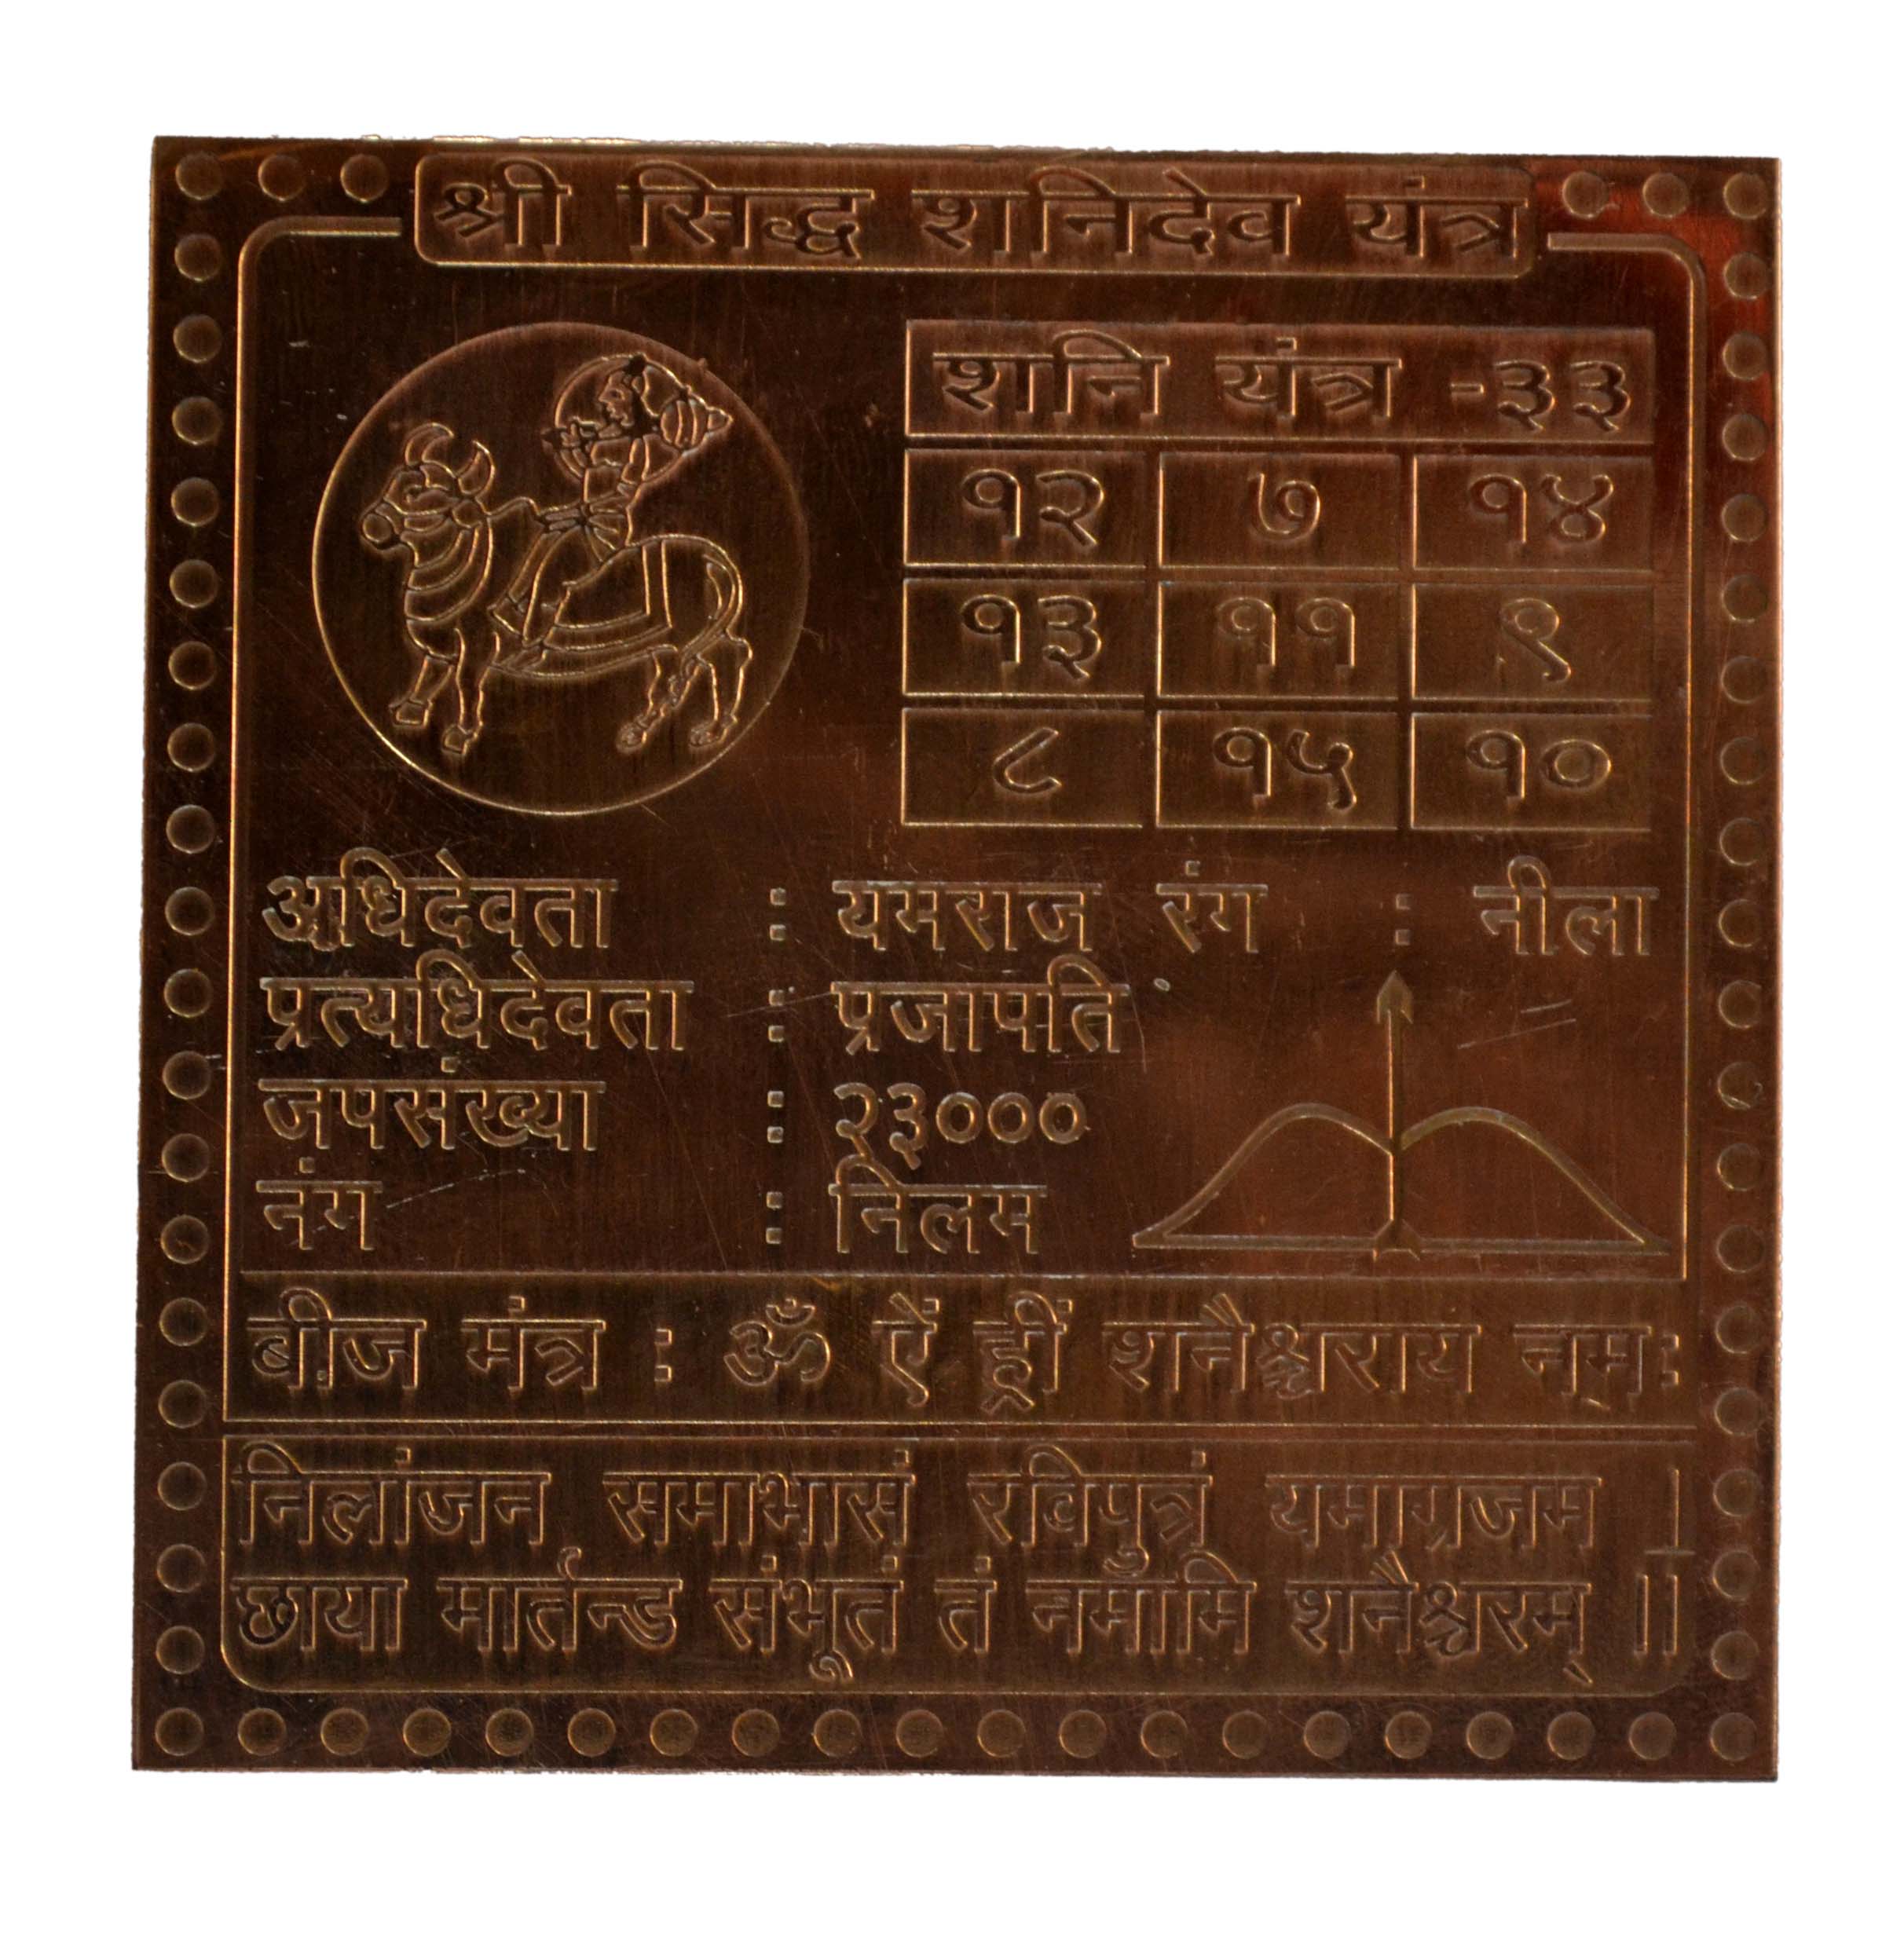 श्री सिद्ध शनिदेव यंत्र
शनि यंत्र -३३
१२ ७ १४
१३ ११ ९
८ १५ १०
अधिदेवता : यमराज रंग : नीला
प्रत्यधिदेवता : प्रजापति
जपसंख्या : २३०००
नंग : निलम
बीज मंत्र : ॐ ऐं ह्रीं शनैश्चराय नमः
निलांजन समाभासं रविपुत्रं यमाग्रजम ।
छाया मार्तन्ड संभूतं तं नमामि शनैश्चरम् ॥